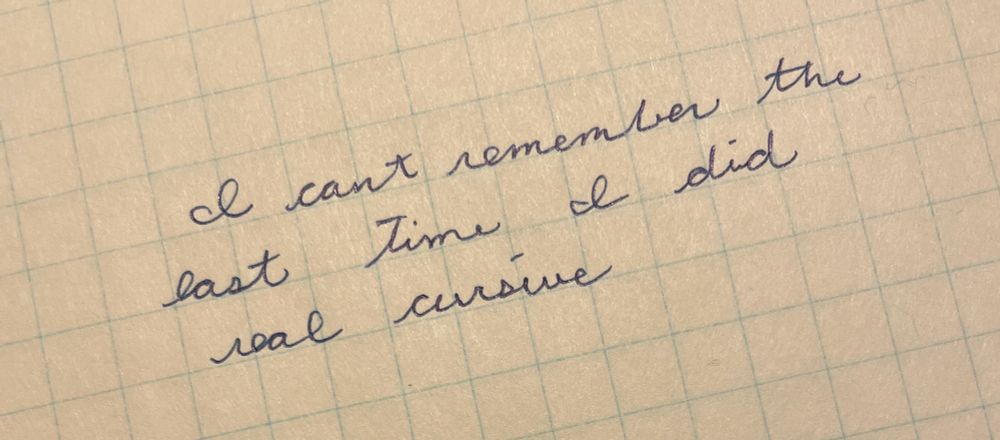 I cant remember the
last time I did
real cursive